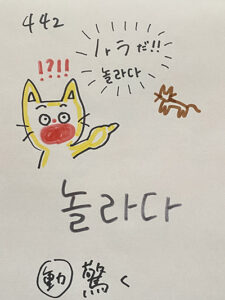 442
!?!!
ノラだ!!
놀라다
놀라다
動 驚く